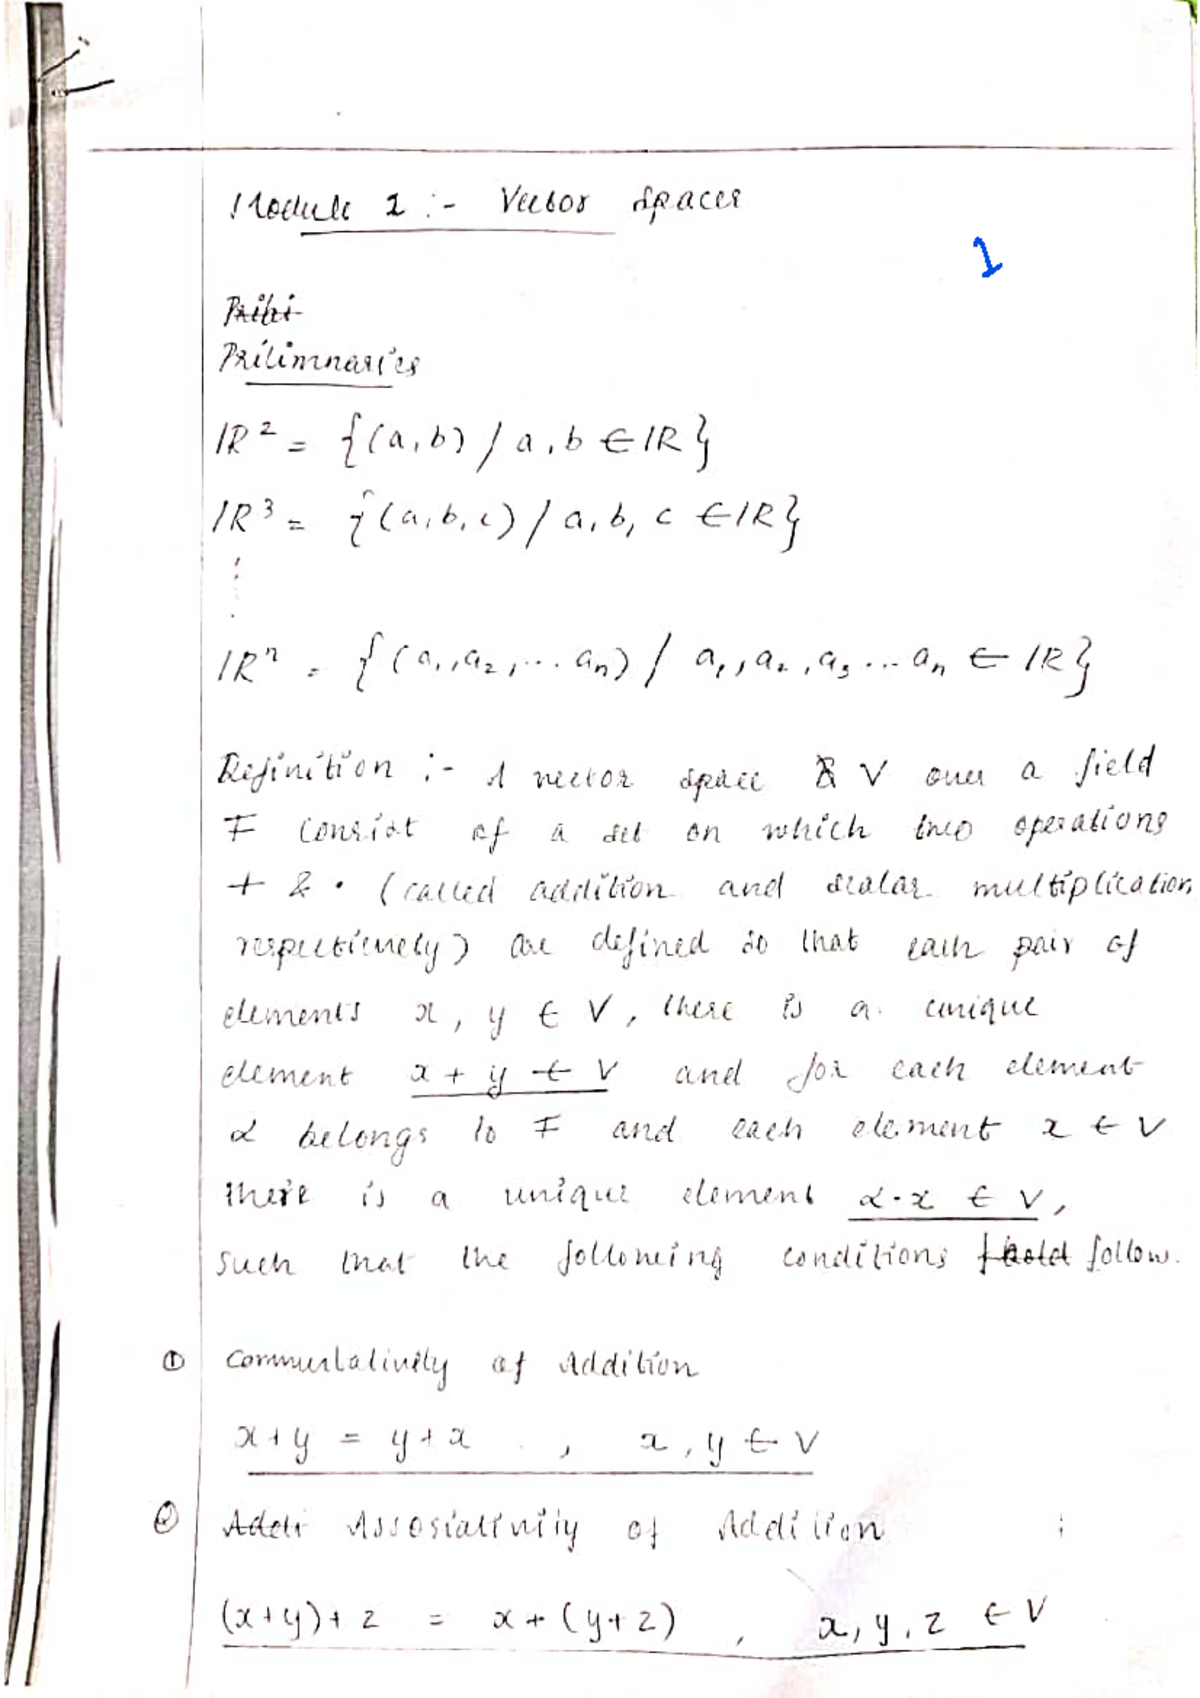 Module 1 :- Vector Spaces
1
Prili
Prilimnaries
IR² = {(a,b) / a,b ∈ IR}
IR³ = {(a,b,c) / a,b,c ∈ IR}
⋮
IRⁿ = {(a₁,a₂,... aₙ) / a₁,a₂,a₃...aₙ ∈ IR}
Definition :- A vector space V over a field
F consist of a set on which two operations
+ & • (called addition and scalar multiplication
respectively) are defined so that each pair of
elements x, y ∈ V, there is a unique
element x + y ∈ V and for each element
α belongs to F and each element x ∈ V
there is a unique element α·x ∈ V,
such that the following conditions hold follow.
① Commutativity of Addition
x+y = y+x , x,y ∈ V
② Addi Assosiativity of Addition
(x+y)+z = x+(y+z) , x,y,z ∈ V